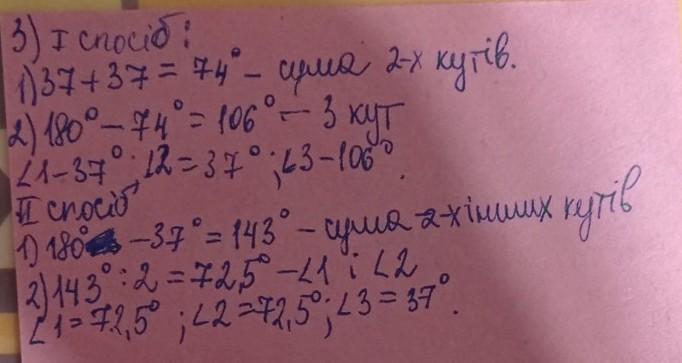 3) I спосіб:
1) 37 + 37 = 74° – сума 2-х кутів.
2) 180° – 74° = 106° – 3 кут
∠1 – 37°; ∠2 = 37°; ∠3 – 106°.
II спосіб
1) 180° – 37° = 143° – сума 2-х інших кутів
2) 143° : 2 = 72,5° – ∠1 і ∠2
∠1 = 72,5°; ∠2 = 72,5°; ∠3 = 37°.